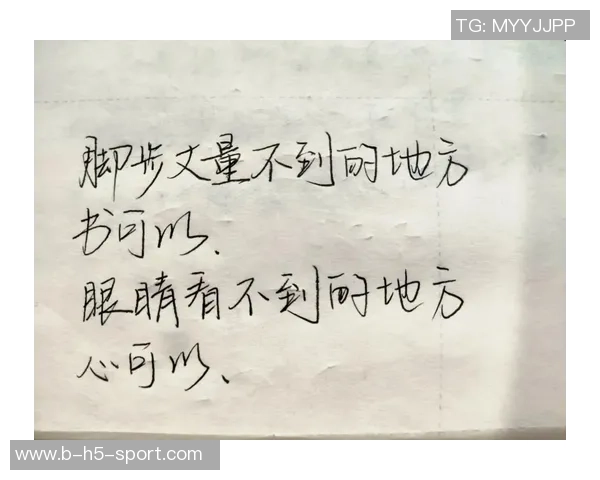 TG: MYYJJPP
脚步丈量不到的地方
书可以、
眼睛看不到的地方
心可以、
www.b-h5-sport.com